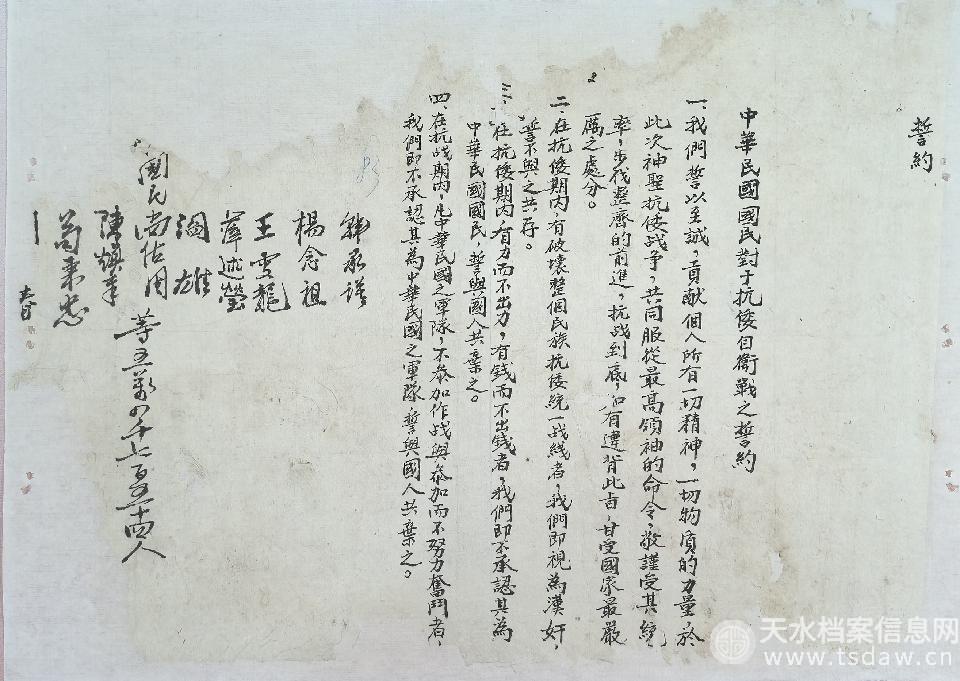 誓約
中華民國國民對于抗倭自衛戰之誓約
一、我們誓以至誠，貢献個人所有一切精神，一切物质的力量，於
此次神聖抗倭战争，共同服從最高領袖的命令，敬謹受其統
率，步伐整齊的前進，抗战到底，如有違背此旨，甘受國家最嚴
厲之處分。
二、在抗倭期内，有破壞整個民族抗倭統一战线者，我們即視為漢奸，
誓不與之共存。
三、在抗倭期内，有力而不出力，有錢而不出錢者，我們即不承認其為
中華民國國民，誓與國人共棄之。
四、在抗战期内，凡中華民國之軍隊，不参加作战與参加而不努力奮鬥者，
我們即不承認其為中華民國之軍隊誓與國人共棄之。
承
楊念祖
王雲龍
述瑩
雄
國民
等五萬四千七百五十四人
陳
天水档案信息网
www.tsdaw.cn